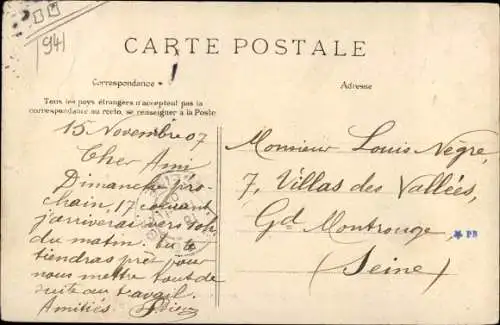 1941
CARTE POSTALE
Correspondance
Adresse
Tous les pays étrangers n'acceptent pas la
correspondance au recto, se renseigner à la Poste
15 Novembre 07
Cher Ami
Dimanche pro-
chain 17 courant
j'arriverai vers 10h
du matin. Tu te
tiendras prêt pour
nous mettre tout de
suite au travail.
Amitiés
Monsieur Louis Negre,
7, Villas des Vallées,
Gd Montrouge,
(Seine)
PB